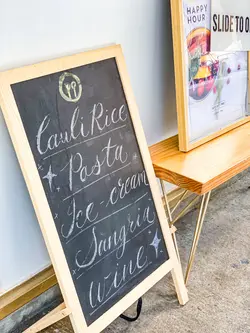 Cauli Rice
Pasta
Ice-cream
Sangria
Wine
HAPPY
HOUR
SLIDE TO O